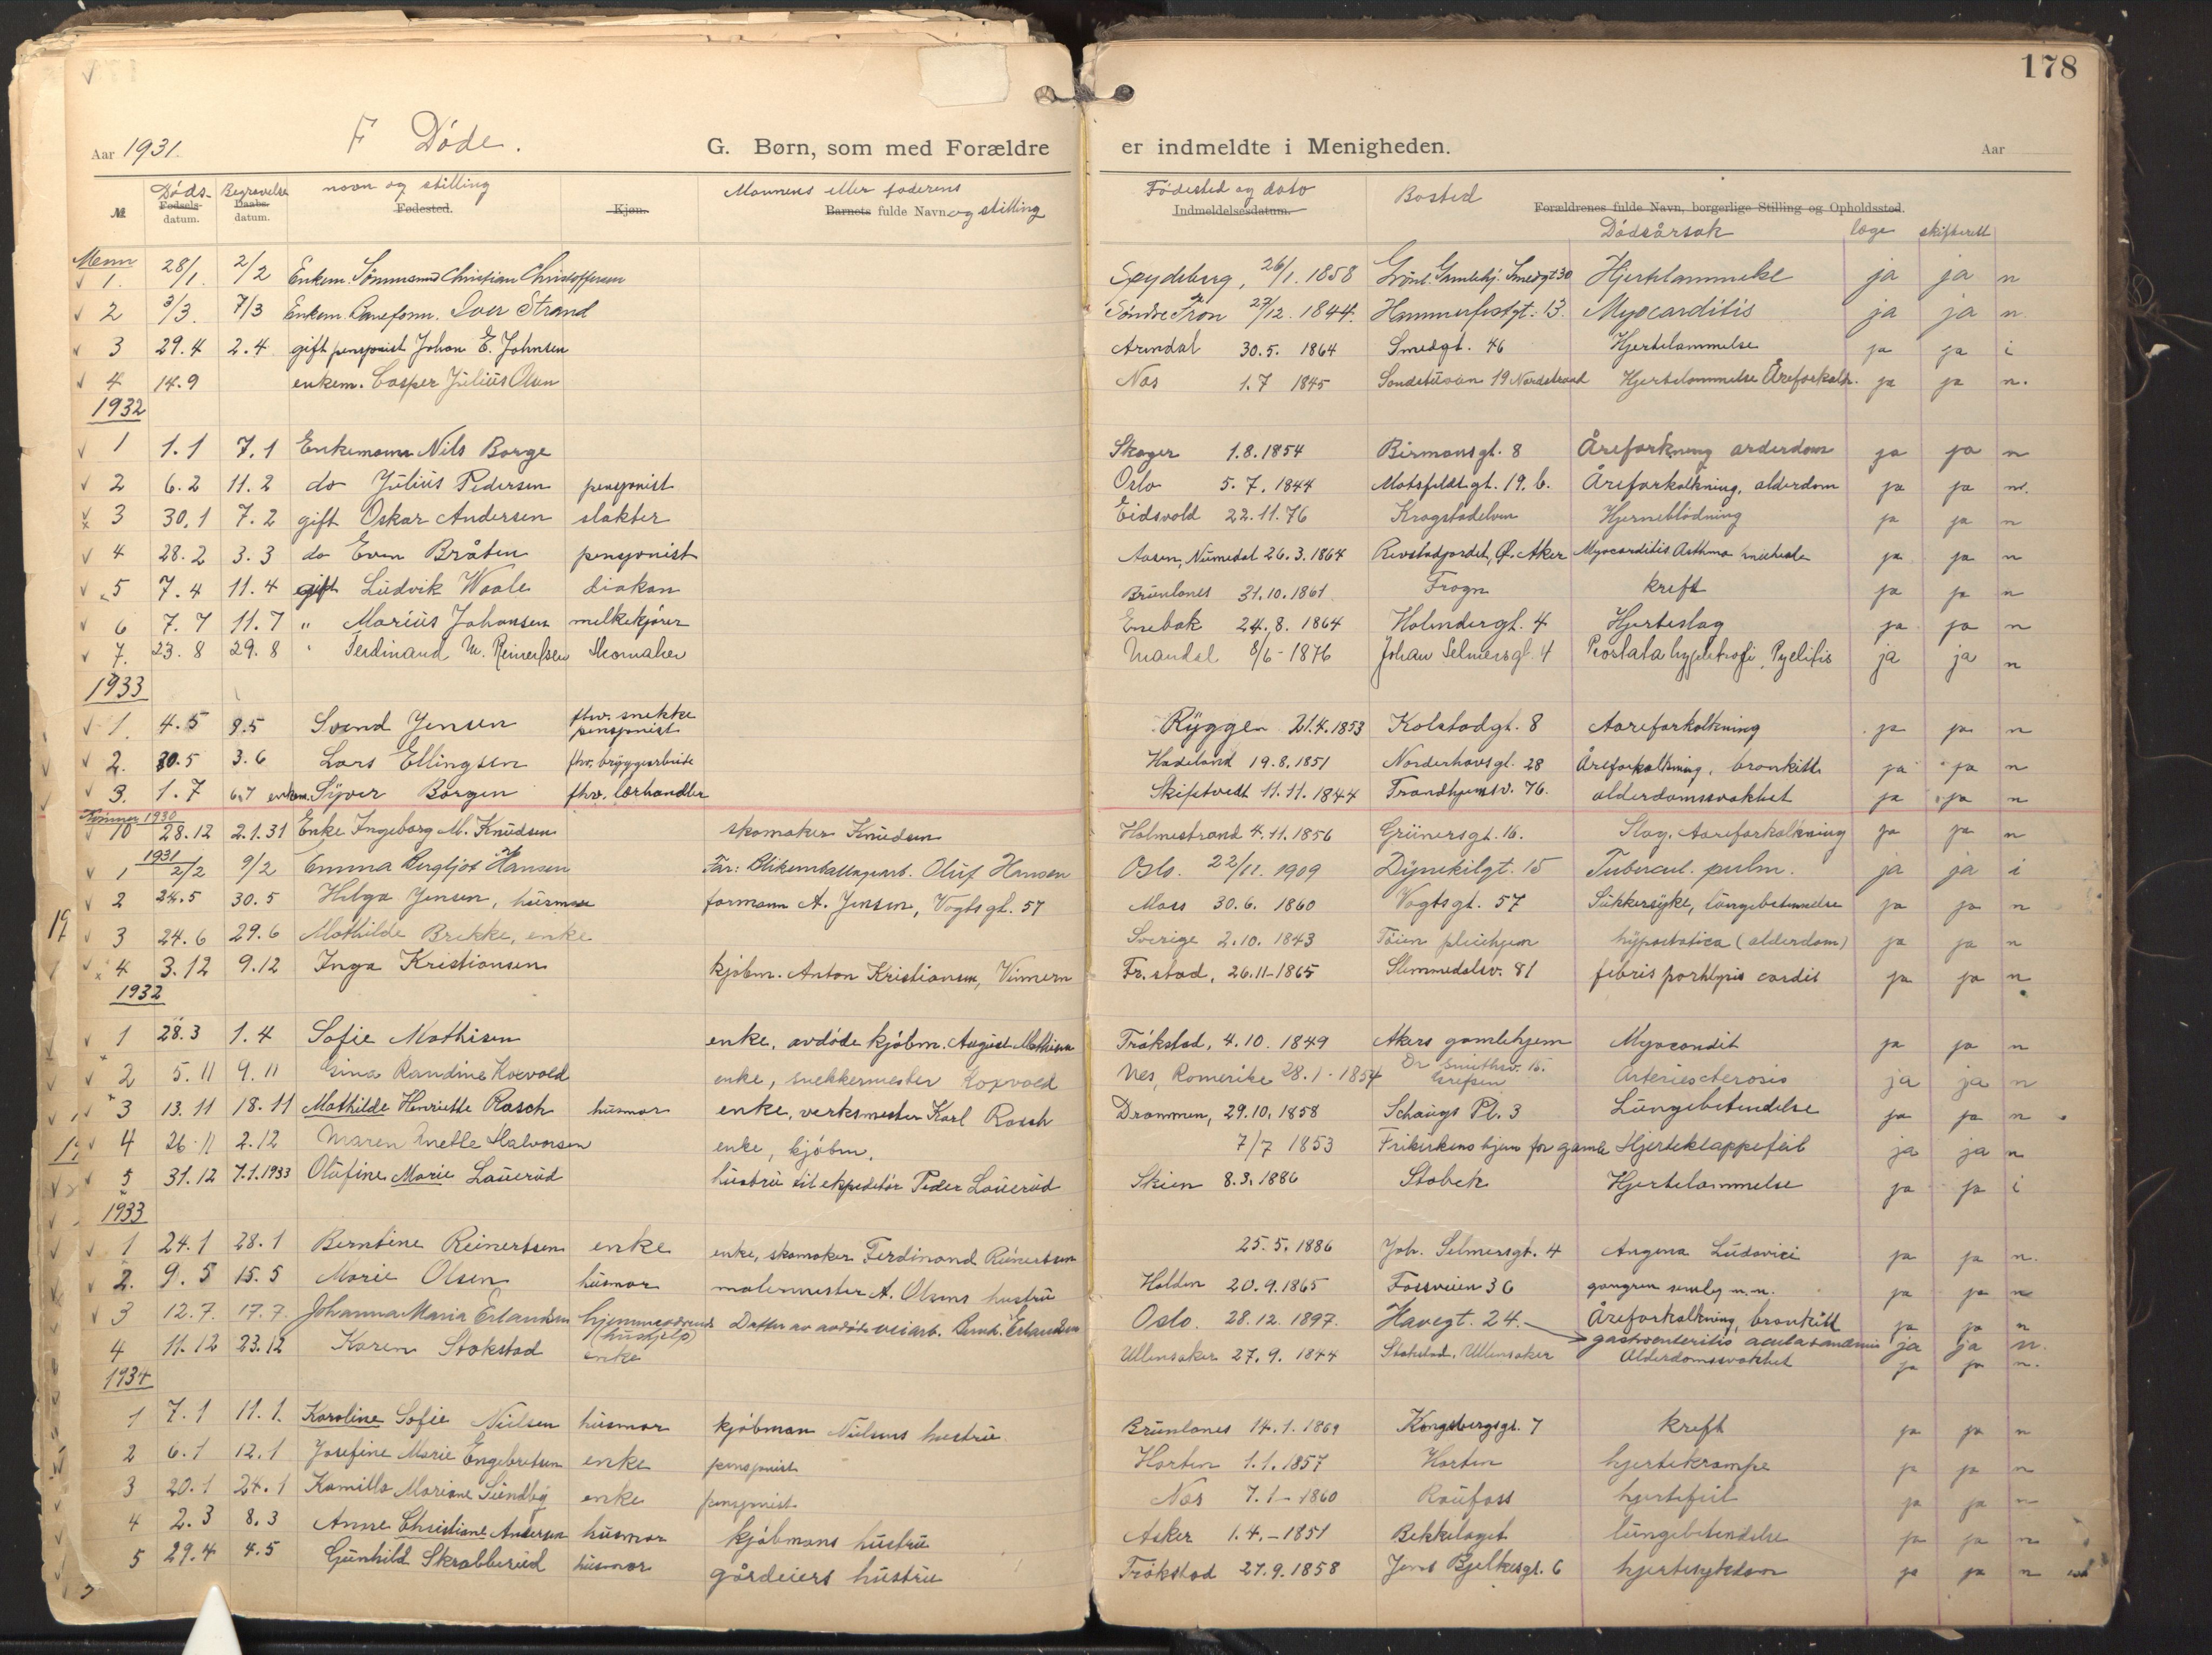 178
Aar 1931. F Døde. G. Børn, som med Forældre er indmeldte i Menigheden. Aar
№ Døds- Fødsels- datum. Begravelse Daabs- datum. navn og stilling Fødested. Kjøn. Mannens eller faderens Barnets fulde Navn og stilling Fødested og dato Indmeldelsesdatum. Bosted Forældrenes fulde Navn, borgerlige Stilling og Opholdssted. Dødsårsak læge skifterett
Menn
1. 28/1. 2/2 Enkem. Sømmand Christian Christoffersen Spydeberg, 26/1. 1858 Grønl. Gamlehj. Smedgt 30 Hjertelammelse ja ja n
2 3/3. 7/3 Enkem. Baneform. Iver Strand Søndre Fron 27/12. 1844. Hammerfestgt. 13. Myocarditis ja ja n
3 29.4 2.4 gift pensjonist Johan E. Johnsen Arendal 30.5. 1864 Smedgt. 46 Hjertelammelse ja ja i
4 14.9 enkem. Casper Julius Olsen Nes 1.7 1845 19 Nordstrand Hjertelammelse Åreforkalk. ja ja n.
1932
1 1.1 7.1 Enkemann Nils Borge Skoger 1.8.1854 Birmansgt. 8 Åreforkning arderdom ja ja n
2 6.2 11.2 do Julius Pedersen pensjonist Oslo 5.7.1844 Motsfeldtgt. 19.b. Åreforkalkning, alderdom ja ja n.
3 30.1 7.2 gift Oskar Andersen slakter Eidsvold 22.11.76 Krogstadelven Hjerneblødning ja ja n
4 28.2 3.3 do Even Bråten pensjonist Aasen, Numedal 26.3.1864 Revstadjordet, Ø. Aker Myocarditis Asthma ja ja n
5 7.4 11.4 gift Ludvik Waale diakon Brunlanes 31.10.1861 Frogn kreft ja ja n
6 7.7 11.7 " Marius Johansen melkekjører Enebak 24.8.1864 Holmdergt. 4 Hjerteslag ja ja n
7. 23.8 29.8 " Ferdinand M. Reinertsen Skomaker Mandal 8/6-1876 Johan Selmersgt. 4 Prostata hypertrofi, Pyelitis ja ja n
1933
1. 4.5 9.5 Svend Jensen fhv. snekke pensjonist Rygge 21.4.1853 Kolstadgt. 8 Aareforkalkning ja ja n
2. 30.5 3.6 Lars Ellingsen fhv. bryggearbeide Hadeland 19.8.1851 Norderhovsgt. 28 Åreforkalkning, bronkitt ja ja n
3. 1.7 6.7 enkem. Syver Borgen fhv. lærhandler Skiptvedt 11.11.1844 Trondhjemsv. 76. alderdomssvakhet ja ja n
Kvinner 1930
10 28.12 2.1.31 Enke Ingeborg M. Knudsen skomaker Knudsen Holmestrand 4.11.1856 Grünersgt. 16. Slag. Aareforkalkning ja ja n
1931
1 2/2 9/2 Emma Bergljot Hansen Far: Blikemballagearb. Oluf Hansen Oslo. 22/11. 1909 Dynekilgt. 15 Tubercul. pulm. ja ja i
2 24.5 30.5 Helga Jensen, husmor formann A. Jensen, Vogtsgt. 57 Moss 30.6.1860 Vogtsgt. 57 Sukkersyke, lungebetennelse ja ja n
3 24.6 29.6 Mathilde Brekke, enke Sverige 2.10.1843 Tøien pleiehjem hypostatica (alderdom) ja ja n
4 3.12 9.12 Inga Kristiansen kjøbm. Anton Kristiansen, Vinmern Fr.stad, 26.11-1865 Slemmedalsv. 81 febris cordis ja ja n
1932
1 28.3 1.4 Sofie Mathisen enke, avdøde kjøbm. August Mathisen Trøkstad, 4.10.1849 Akers gamlehjem Myocardit ja ja n
2 5.11 9.11 Gina Randine Korvold enke, snekkermester Korvold Nes, Romerike 28.1.1854 Dr Smithsv. 15. Grefsen Arteriescterosis ja ja n
3 13.11 18.11 Mathilde Henriette Rasch husmor enke, verksmester Karl Rasch Drammen, 29.10.1858 Schaugs Pl. 3 Lungebetendelse ja ja n
4 26.11 2.12 Maren Anette Halvorsen enke, kjøbm. 7/7 1853 Frikirkens hjem for gamle Hjerteklappefeil ja ja n
5 31.12 7.1.1933 Olufine Marie Lauerud hustru til ekspeditør Peder Lauerud Skien 8.3.1886 Stabek Hjertelammelse ja ja i
1933
1 24.1 28.1 Berntine Reinertsen enke enke, skomaker Ferdinand Reinertsen 25.5.1886 Joh. Selmersgt. 4 Angina Ludovici ja ja n.
2. 9.5 15.5 Marie Olsen husmor malermester A. Olsens hustru Halden 20.9.1865 Fossveien 36 gangren ja ja n
3 12.7. 17.7. Johanna Maria Erlandsen hjemmeværende (hushjelp) Datter av avdøde veiarb. Bernh. Erlandsen Oslo. 28.12.1897. Havegt. 24. Åreforkalkning, bronkitt ja ja n
gastroenteritis acuta ja ja n.
4 11.12 23.12 Karen Stokstad enke Ullensaker 27.9.1844 Stokstad, Ullensaker Alderdomssvakhet ja ja n.
1934
1 7.1 11.1. Karoline Sofie Nielsen husmor kjøbman Nielsens hustru Brunlanes 14.1.1869 Kongsbergsgt. 7 kreft ja ja n
2 6.1 12.1 Josefine Marie Engebretsen enke pensjonist Horten 1.1.1857 Horten hjertekrampe ja ja n
3 20.1 24.1 Kamilla Mariane Sundby enke pensjonist Nes 7.1-1860 Raufoss hjertefeil ja ja n
4 2.3 8.3 Anne Christiane Andersen husmor kjøbmans hustru Asker 1.4.-1851 Bekkelaget lungebetendelse ja ja n
5 29.4 4.5 Gunhild Skrabberud husmor gårdeiers hustru Trøkstad 27.9.1858 Jens Bjelkesgt. 6 hjertesykdom ja ja n